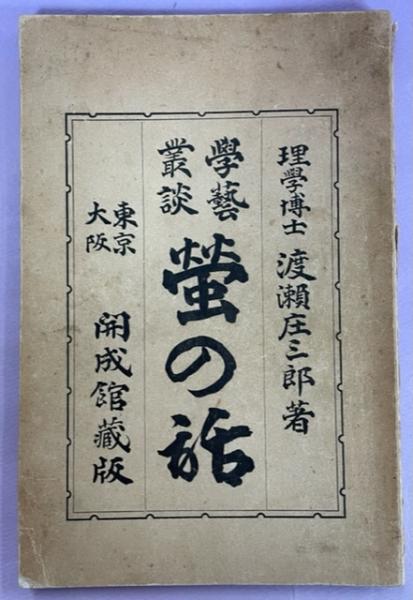 理學博士 渡瀨庄三郎著
學藝
叢談
螢の話
東京
大阪
開成館藏版